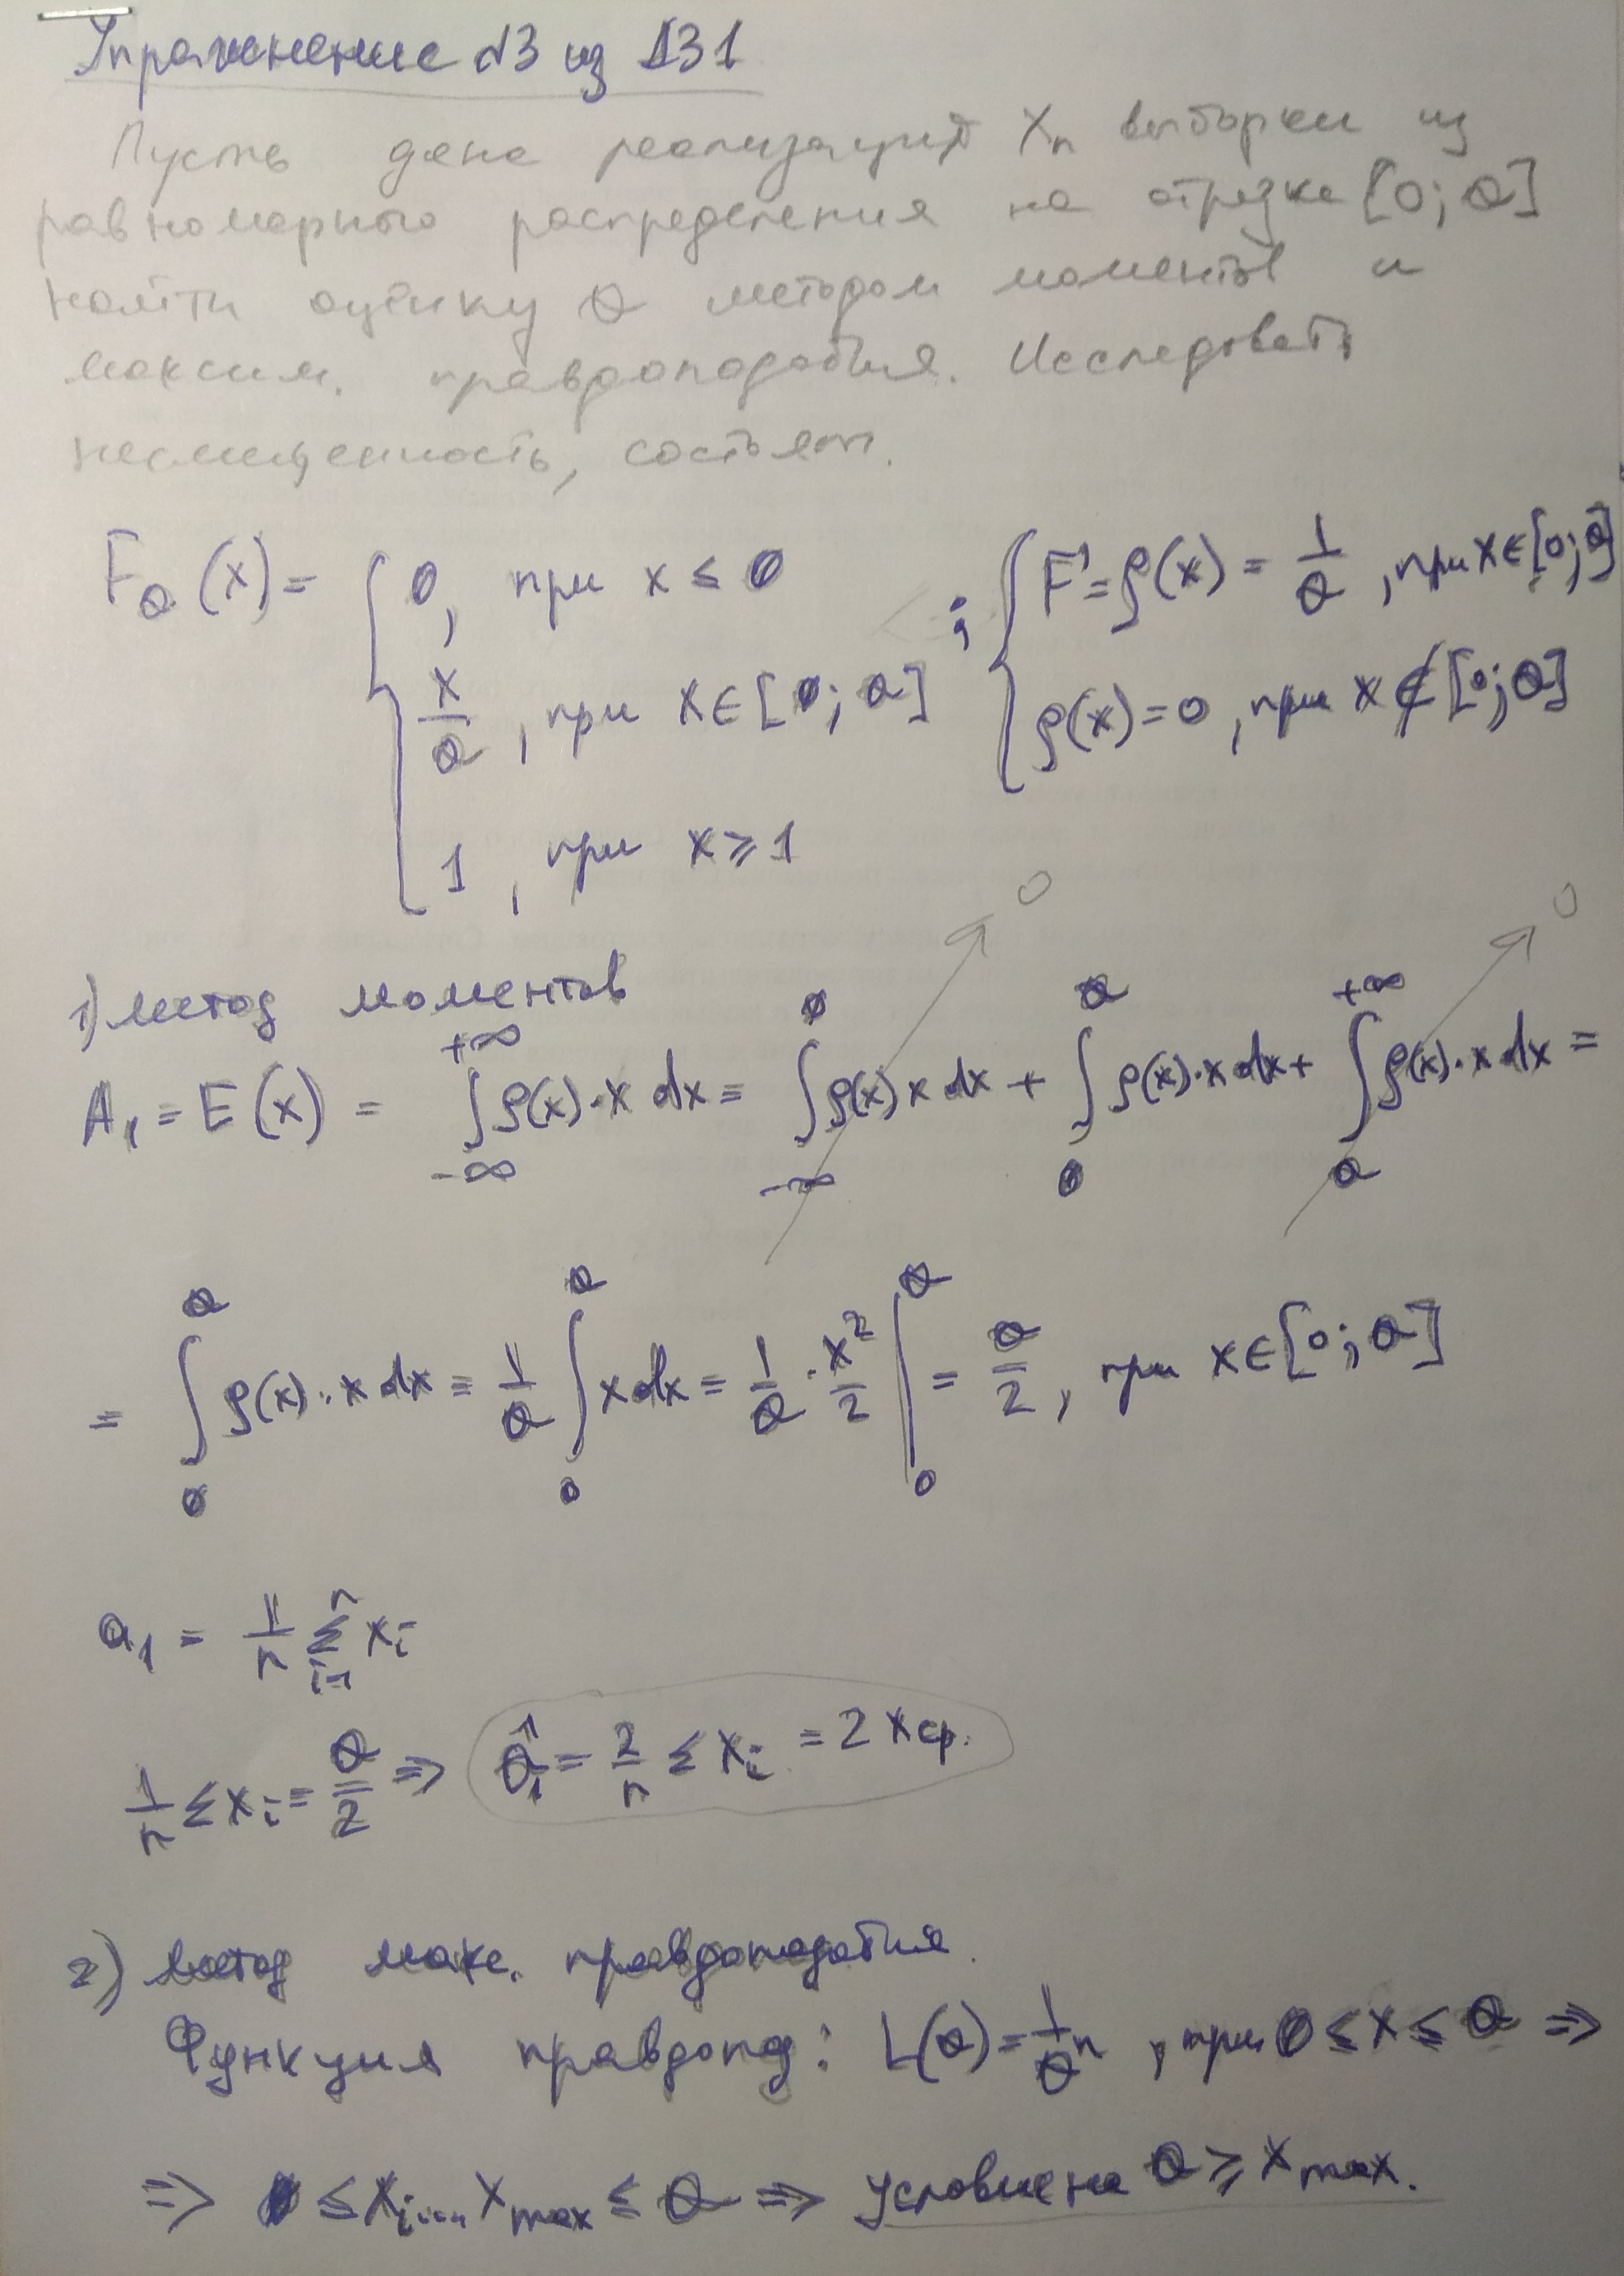 Упражнение №3 из ДЗ1
Пусть дана реализация Xn выборки из
равномерного распределения на отрезке [0; θ]
найти оценку θ методом моментов и
максим. правдоподобия. Исследовать
несмещенность, состоят.
Fθ(x) = { 0, при x ≤ 0 ; { F' = ρ(x) = 1/θ, при x ∈ [0; θ]
x/θ, при x ∈ [0; θ] ρ(x) = 0, при x ∉ [0; θ]
1, при x ≥ 1
1) метод моментов
A₁ = E(x) = ∫_{-∞}^{+∞} ρ(x)·x dx = ∫_{-∞}^{0} ρ(x) x dx → 0 + ∫_{0}^{θ} ρ(x)·x dx + ∫_{θ}^{+∞} ρ(x)·x dx → 0 =
= ∫_{0}^{θ} ρ(x)·x dx = 1/θ ∫_{0}^{θ} x dx = 1/θ · x²/2 |_{0}^{θ} = θ/2, при x ∈ [0; θ]
a₁ = 1/n Σ_{i=1}^{n} xᵢ
1/n Σ xᵢ = θ/2 ⇒ θ̂₁ = 2/n Σ xᵢ = 2 xср.
2) метод макс. правдоподобия.
Функция правдопод: L(θ) = 1/θⁿ, при 0 ≤ x ≤ θ ⇒
⇒ 0 ≤ xᵢ... xmax ≤ θ ⇒ условие на θ ≥ xmax.